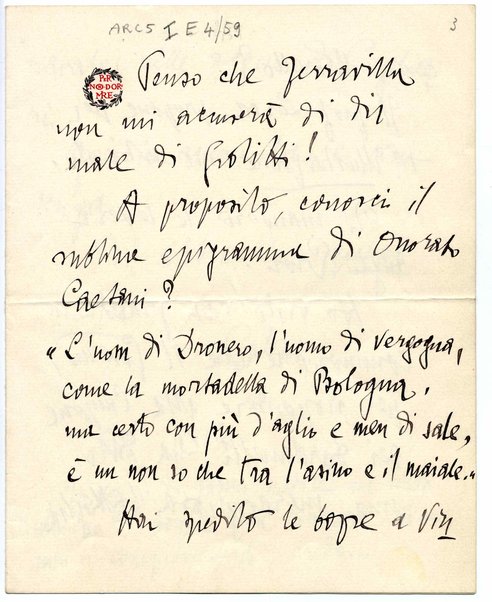 ARC5 I E 4/59
3
PER
NON DOR
MIRE
Penso che Ferravilla
non mi accuserà di dir
male di Giolitti!
A proposito, conosci il
sublime epigramma di Onorato
Caetani?
"L'uom di Dronero, l'uomo di vergogna,
come la mortadella di Bologna,
ma certo con più d'aglio e men di sale,
è un non so che tra l'asino e il maiale."
Hai spedito le copie a